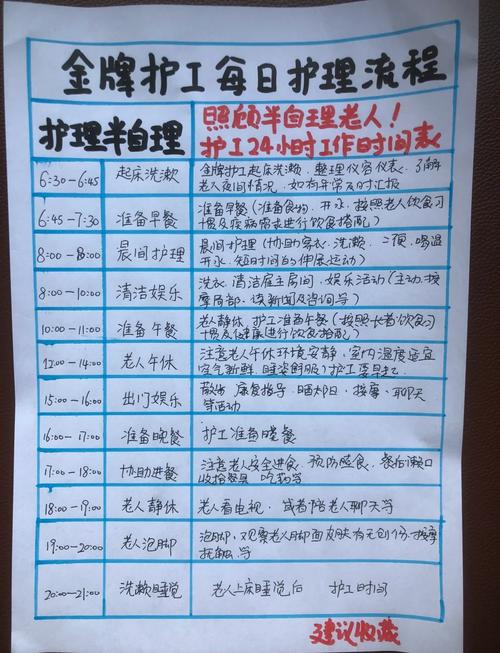 金牌护工每日护理流程
护理半自理
照顾半自理老人！
护工24小时工作时间表
6:30-6:45
起床洗漱
金牌护工起床洗漱、整理仪容仪表、了解
老人夜间情况，如有异常及时汇报
6:45-7:30
准备早餐
准备早餐(准备食物、开水、按照老人饮食习
惯及疾病需求进行饮食搭配)
8:00-8:00
晨间护理
晨间护理(协助穿衣、洗漱、二便、喝温
开水、短时间的伸展运动)
8:00-10:00
清洁娱乐
洗衣、清洁雇主房间、娱乐活动(主动、按
摩局部、读新闻及咨询等)
10:00-11:00
准备午餐
老人静休、护工准备午餐(按照长者饮食习
惯及健康进行饮食搭配)
12:00-14:00
老人午休
注意老人午休环境安静，室内湿度适宜
空气新鲜、睡姿舒服)护工
15:00-16:00
出门娱乐
散步、康复指导、晒太阳、按摩、聊天
等活动
16:00-17:00
准备晚餐
护工准备晚餐
17:00-18:00
协助进餐
注意老人安全进食、预防噎食、餐后漱口
收拾餐具、吃药等
18:00-19:00
老人静休
老人看电视、或者陪老人聊天等
19:00-20:00
老人泡脚
泡脚、观察老人脚面皮肤有无创伤、按摩
抚触等
20:00-21:00
洗漱睡觉
老人上床睡觉后 护工时间
建议收藏